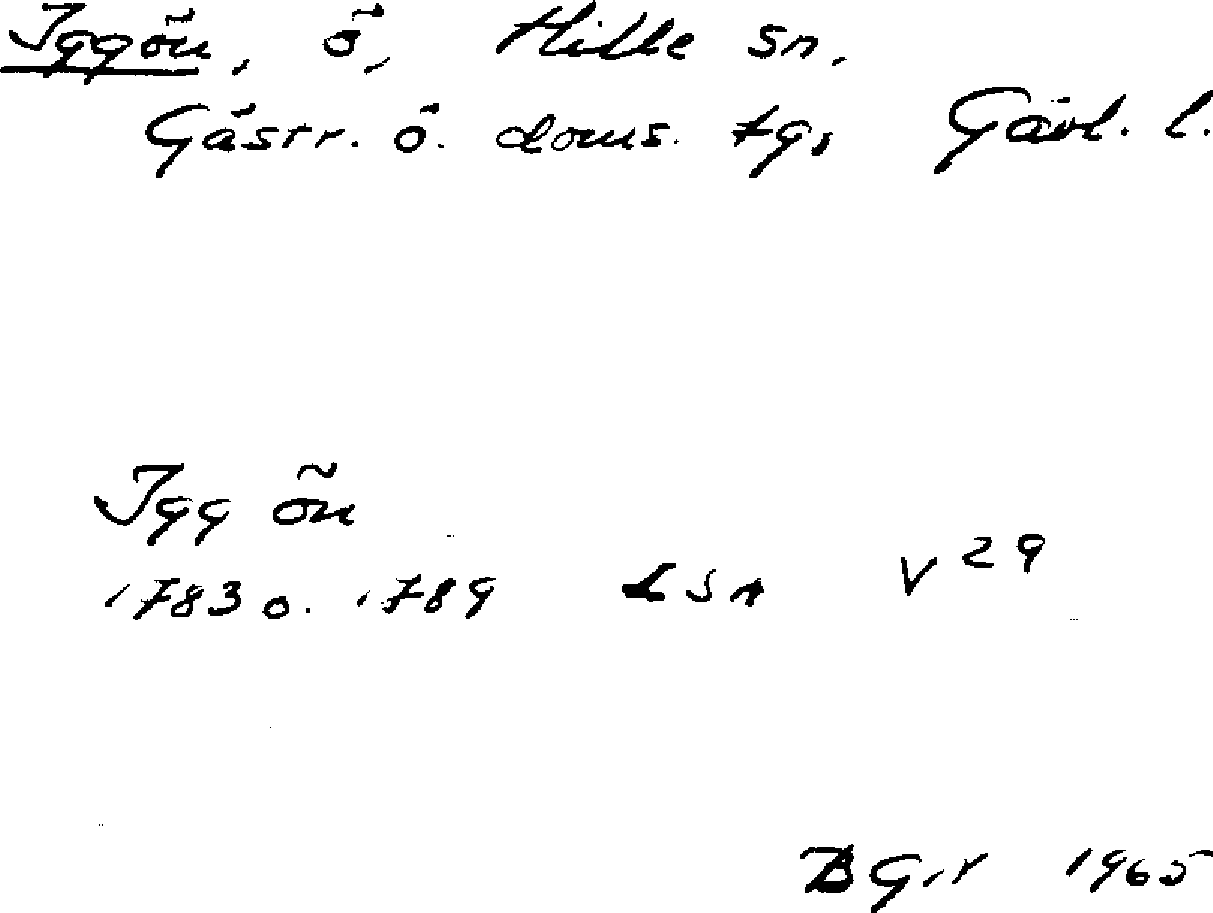 Iggön, ö, Hille sn,
Gästr. ö. doms. tg, Gävl. l.
Igg ön
1783 o. 1789 LSA V29
1965